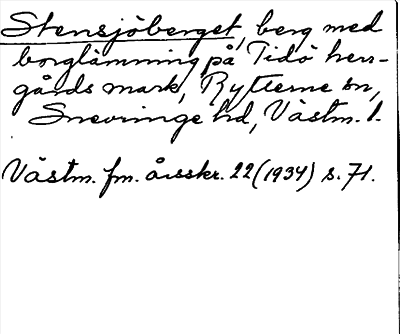 Stensjöberget, berg med
borglämning på Tidö herr-
gårds mark, Rytterne sn,
Snevringe hd, Västm. l.
Västm. fm. årsskr. 22 (1934) s. 71.